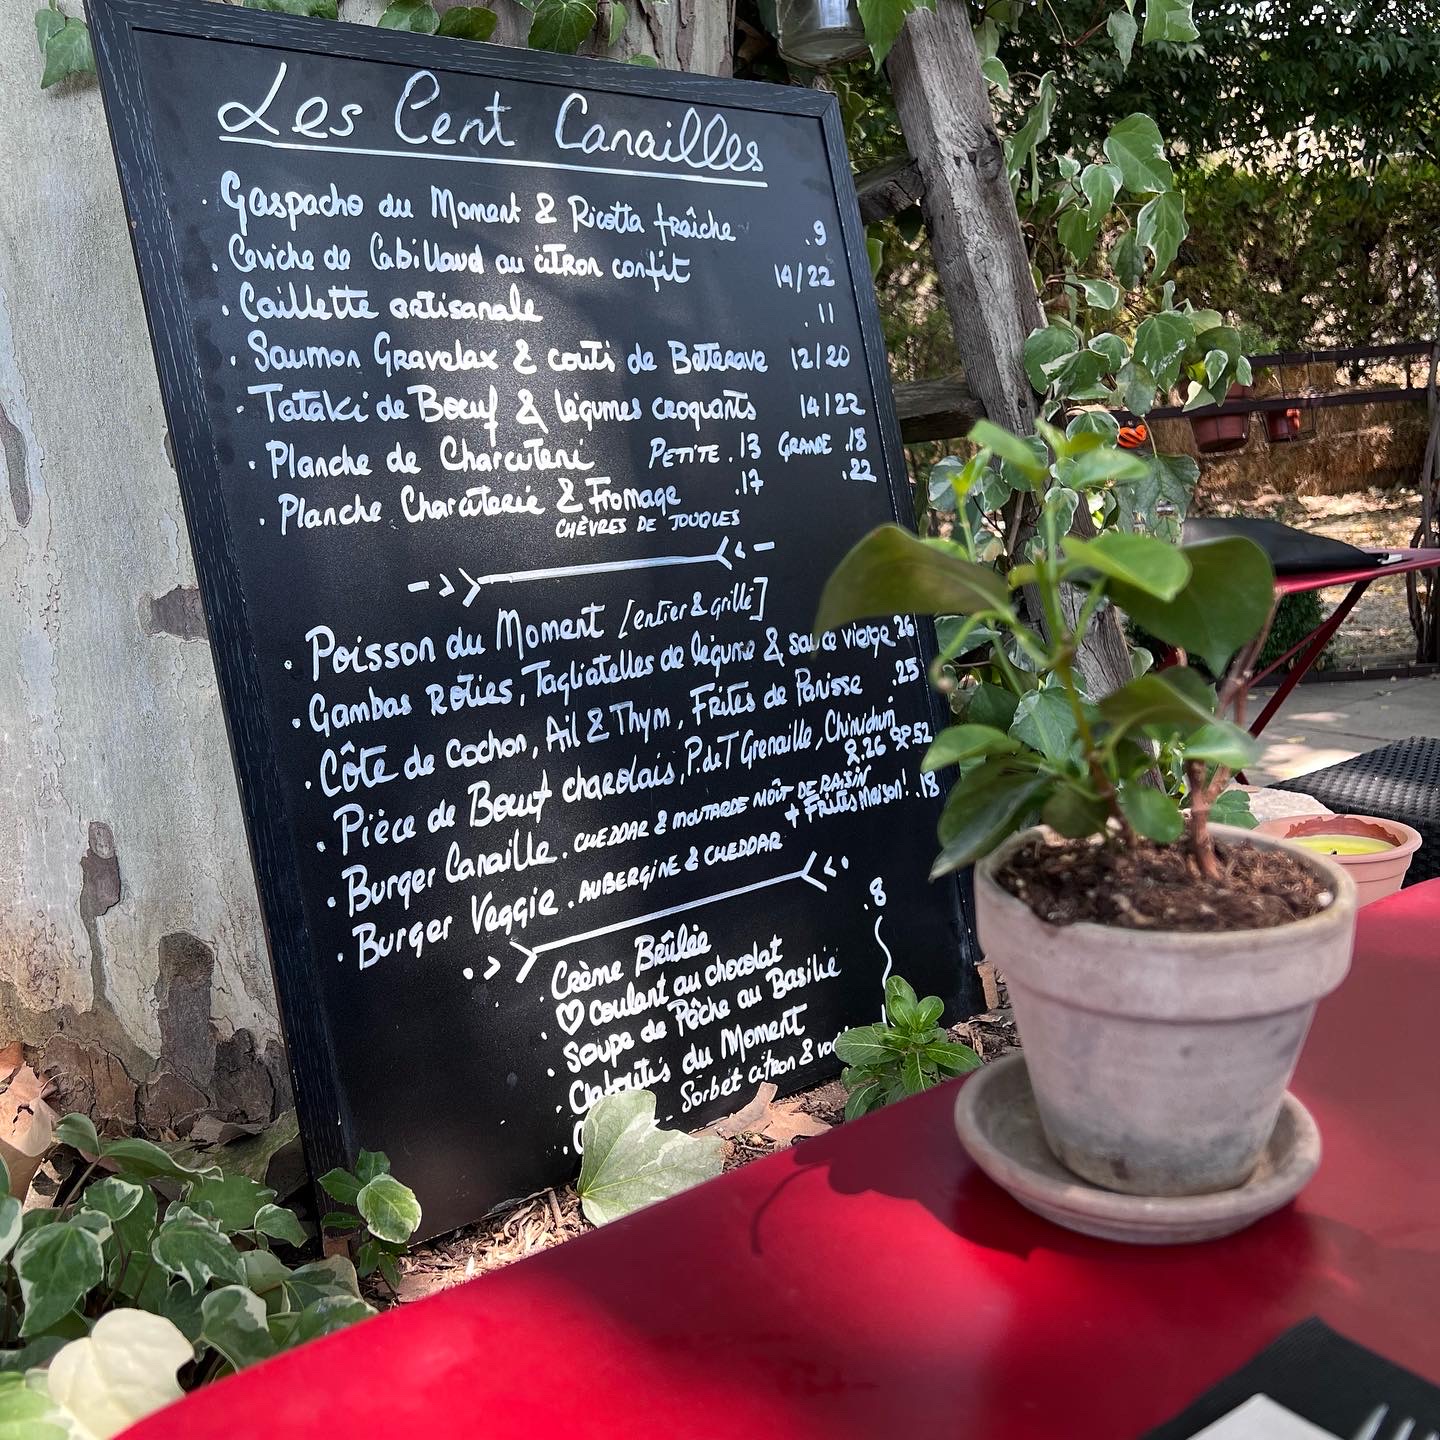 Les Cent Canailles
. Gaspacho du Moment & Ricotta fraîche .9
. Ceviche de Cabillaud au citron confit 14/22
. Caillette artisanale . 11
. Saumon Gravelax & couli de Betterave 12/20
. Tataki de Boeuf & légumes croquants 14/22
. Planche de Charcuterie PETITE .13 GRANDE .18
. Planche Charcuterie & Fromage .17 .22
CHÈVRES DE JOUQUES
. Poisson du Moment [entier & grillé]
. Gambas Roties, Tagliatelles de légume & sauce vierge 26
. Côte de cochon, Ail & Thym, Frites de Panisse .25
. Pièce de Boeuf charolais, P.de T Grenaille, Chimichurri .26 .52
. Burger Canaille . CHEDDAR & MOUTARDE MOÛT DE RAISIN
. Burger Veggie . AUBERGINE & CHEDDAR + FRITES MAISON! .18
. Crème Brûlée .8
. ♡ coulant au chocolat
. Soupe de Pêche au Basilic
. Clafoutis du Moment
. Sorbet citron &